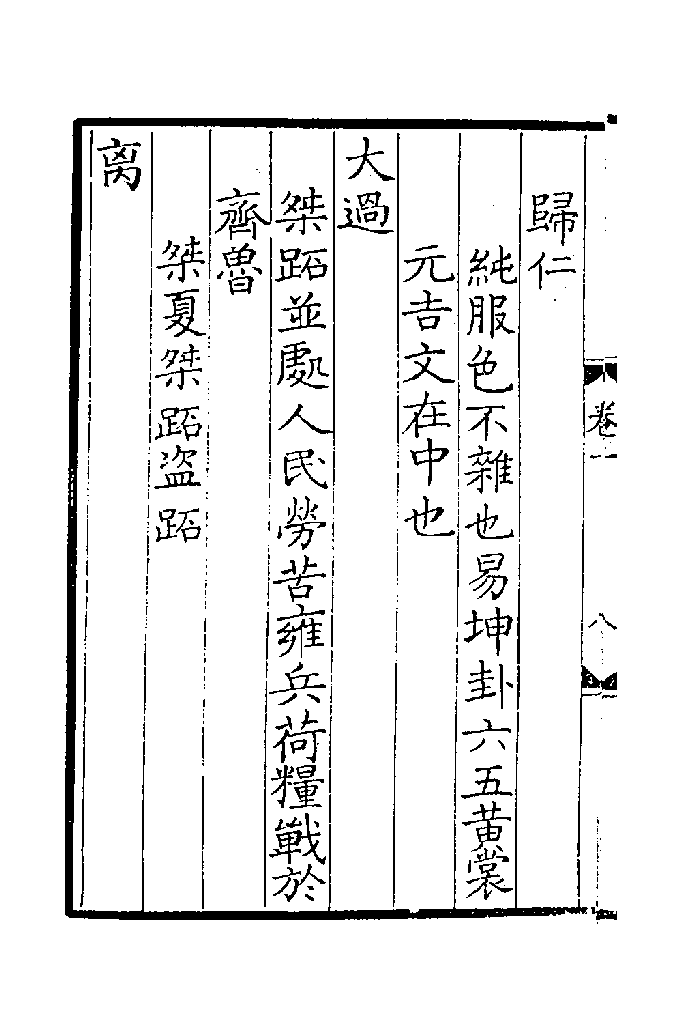 歸仁
純服色不雜也易坤卦六五黃裳
元吉文在中也
大過
桀跖並處人民勞苦雍兵荷糧戰於
齊魯
桀夏桀跖盜跖
离
卷一
八